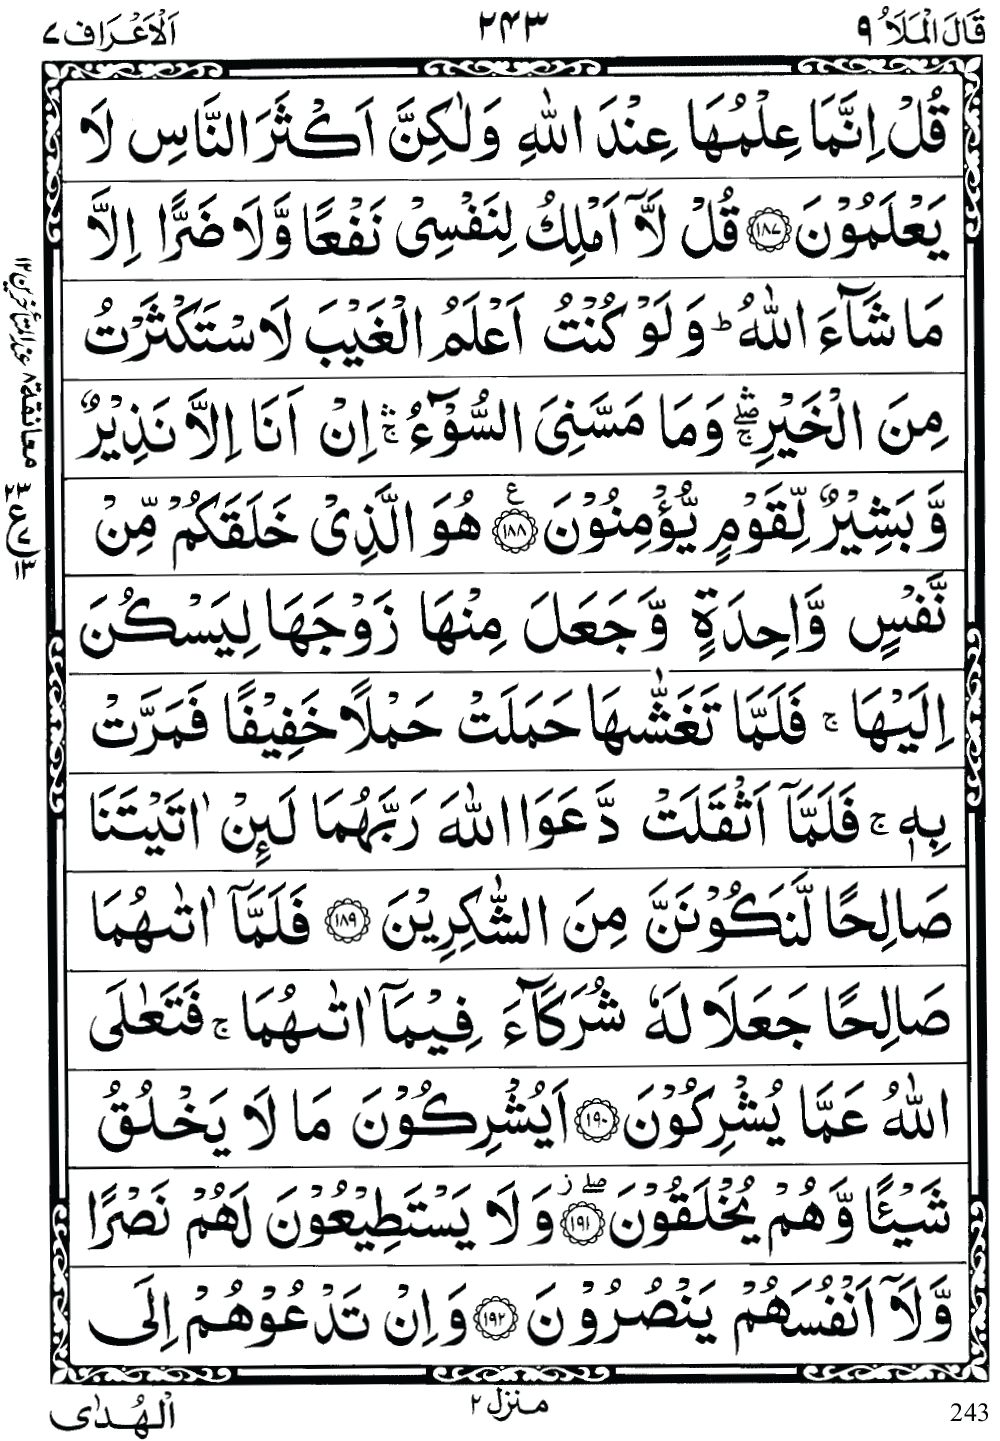 قَالَ الْمَلَاُ ٩
٢٤٣
اَلْاَعْرَاف ٧
قُلْ اِنَّمَا عِلْمُهَا عِنْدَ اللّٰهِ وَلٰكِنَّ اَكْثَرَ النَّاسِ لَا
يَعْلَمُوْنَ ﴿١٨٧﴾ قُلْ لَّاۤ اَمْلِكُ لِنَفْسِىْ نَفْعًا وَّلَا ضَرًّا اِلَّا
مَا شَآءَ اللّٰهُ ؕ وَلَوْ كُنْتُ اَعْلَمُ الْغَيْبَ لَاسْتَكْثَرْتُ
مِنَ الْخَيْرِ ۛۖۚ وَمَا مَسَّنِىَ السُّوْٓءُ ۛۚ اِنْ اَنَا اِلَّا نَذِيْرٌ
وَّبَشِيْرٌ لِّقَوْمٍ يُّؤْمِنُوْنَ ﴿١٨٨﴾ ع هُوَ الَّذِىْ خَلَقَكُمْ مِّنْ
نَّفْسٍ وَّاحِدَةٍ وَّجَعَلَ مِنْهَا زَوْجَهَا لِيَسْكُنَ
اِلَيْهَا ۚ فَلَمَّا تَغَشّٰىهَا حَمَلَتْ حَمْلًا خَفِيْفًا فَمَرَّتْ
بِهٖ ۚ فَلَمَّاۤ اَثْقَلَتْ دَّعَوَا اللّٰهَ رَبَّهُمَا لَئِنْ اٰتَيْتَنَا
صَالِحًا لَّنَكُوْنَنَّ مِنَ الشّٰكِرِيْنَ ﴿١٨٩﴾ فَلَمَّاۤ اٰتٰىهُمَا
صَالِحًا جَعَلَا لَهٗ شُرَكَآءَ فِيْمَاۤ اٰتٰىهُمَا ۚ فَتَعٰلَى
اللّٰهُ عَمَّا يُشْرِكُوْنَ ﴿١٩٠﴾ اَيُشْرِكُوْنَ مَا لَا يَخْلُقُ
شَيْـًٔا وَّهُمْ يُخْلَقُوْنَ ﴿١٩١﴾ صلے ز وَلَا يَسْتَطِيْعُوْنَ لَهُمْ نَصْرًا
وَّلَاۤ اَنْفُسَهُمْ يَنْصُرُوْنَ ﴿١٩٢﴾ وَاِنْ تَدْعُوْهُمْ اِلَى
معانقة ٨ عند المتأخرين ١٢
منزل ٢
الْهُدٰى
243